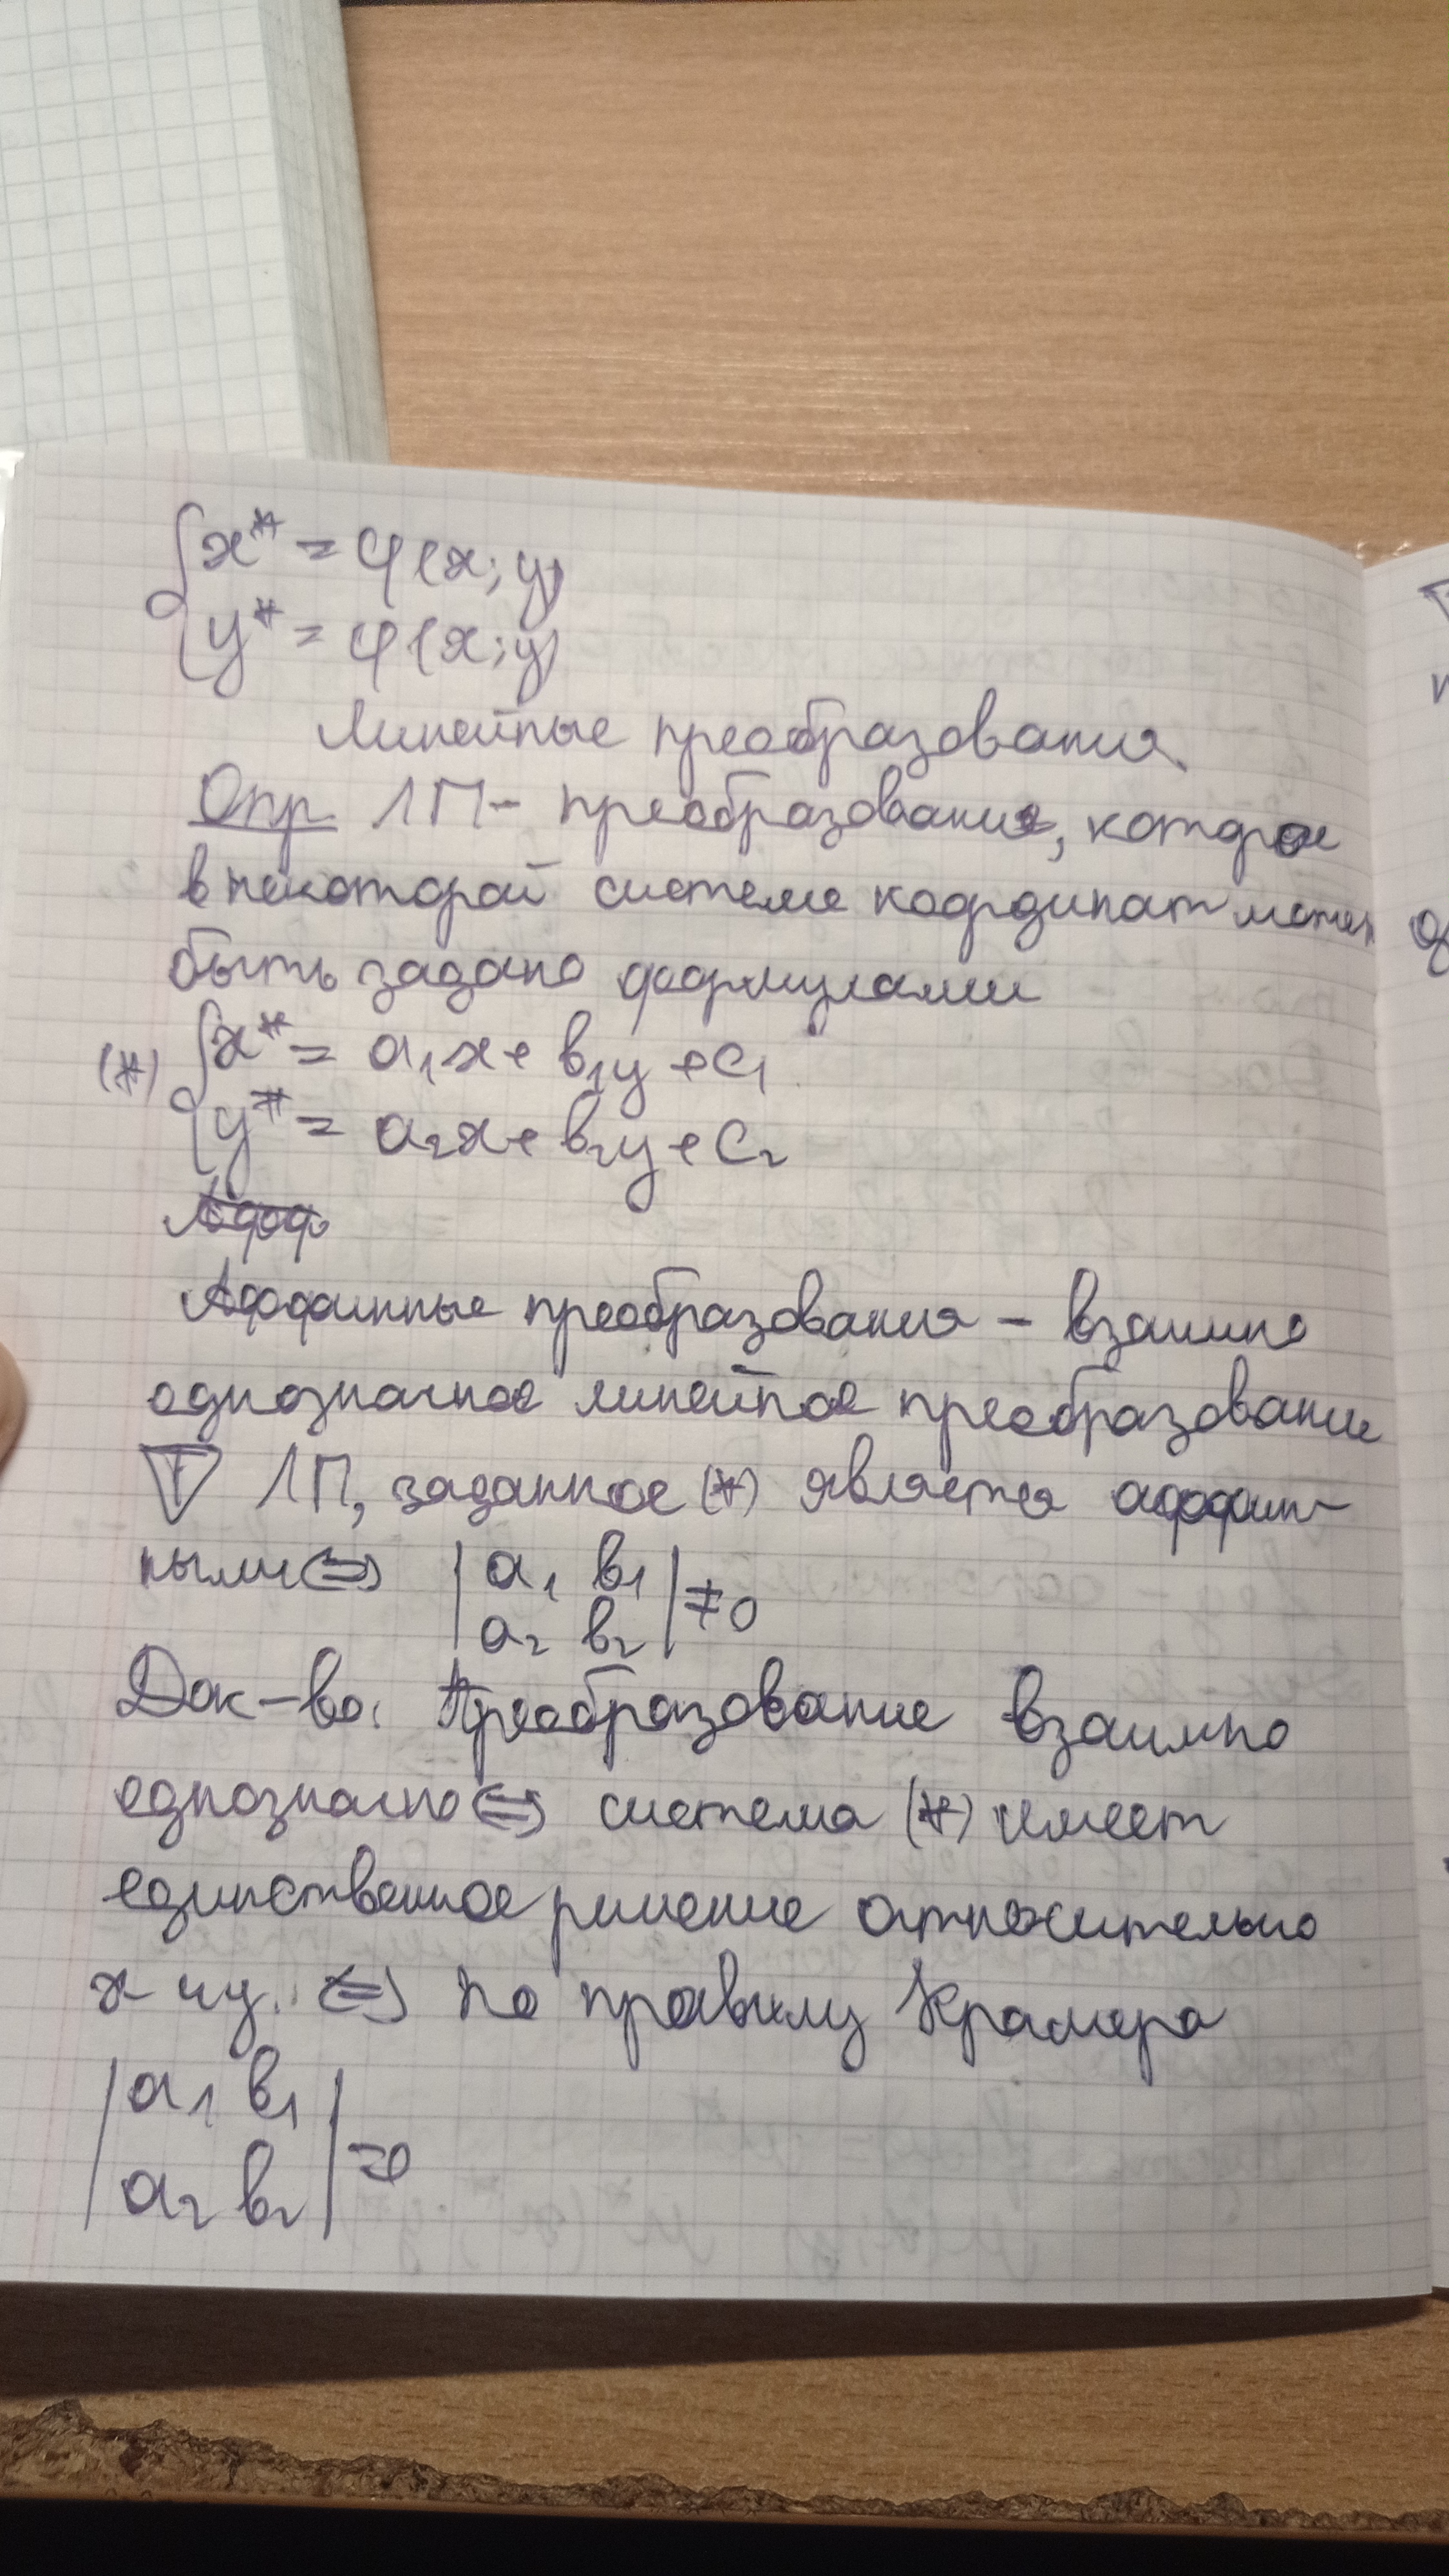 { x* = φ(x; y)
{ y* = φ(x; y)
Линейные преобразования.
Опр. ЛП - преобразование, которое
в некоторой системе координат может
быть задано формулами
(*) { x* = a₁x + b₁y + c₁
{ y* = a₂x + b₂y + c₂
Афф
Аффинные преобразования - взаимно
однозначное линейное преобразование
Т ЛП, заданное (*) является аффин-
ными <=> | a₁ b₁ | ≠ 0
| a₂ b₂ |
Док-во: Преобразование взаимно
однозначно <=> система (*) имеет
единственное решение относительно
x и y. <=> по правилу Крамера
| a₁ b₁ |
| a₂ b₂ | =0